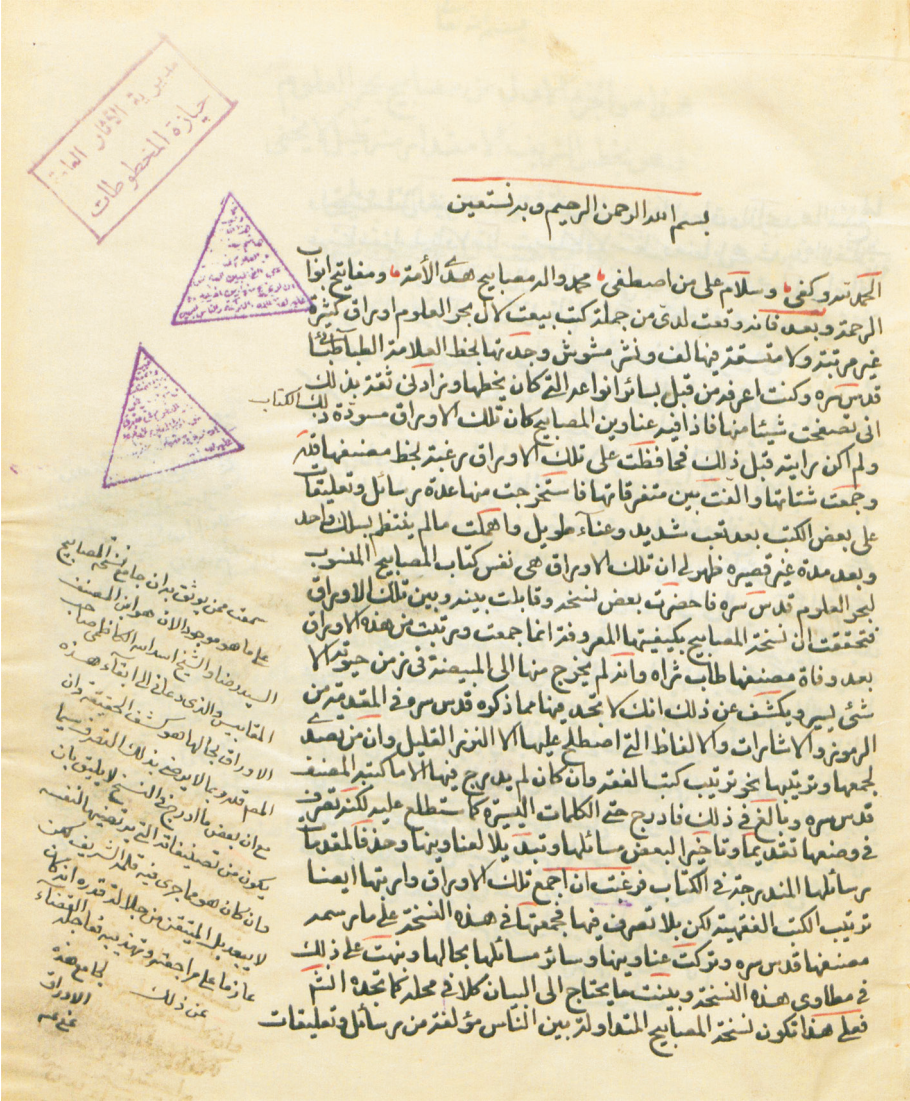 مديرية الآثار العامة
حيازة المخطوطات
بسم الله الرحمن الرحيم وبه نستعين
الحمد لله وكفى وسلام على من اصطفى محمد واله مصابيح هذه الأمة ومفاتيح ابواب
الرحمة وبعد فانه وقعت لدى من جملة كتب بيعت كال بحر العلوم اوراق كثيرة
غير مرتبة ولا متسقة فيها لف ونشر مشوش وجدتها بخط العلامة الطباطبائي
قدس سره وكنت اعرفه من قبل بسائر انواعه التي كان يخطها وزادني ثقة بذلك
اني تصفحت شيئا منها فاذا فيه عناوين المصابيح كان تلك الاوراق مسودة ذلك الكتاب
ولم اكن رايته قبل ذلك فحافظت على تلك الاوراق رغبة بخط مصنفها قده
وجمعت شتاتها والفت بين متفرقاتها فاستخرجت منها عدة رسائل وتعليقات
على بعض الكتب بعد تعب شديد وعناء طويل واهملت مالم ينتظم بسلك واحد
وبعد مدة غير قصيرة ظهر لي ان تلك الاوراق هي نفس كتاب المصابيح المنسوب
لبحر العلوم قدس سره فاحضرت بعض نسخه وقابلت بينه وبين تلك الاوراق
فتحققت ان نسخة المصابيح بكيفيتها المعروفة انما جمعت ورتبت من هذه الاوراق
بعد وفاة مصنفها طاب ثراه وانه لم يخرج منها الى المبيضة في زمن حيوته الا
شئ يسير ويكشف عن ذلك انك لا تجد فيها مما ذكره قدس سره في المقدمة من
الرموز والاشارات والالفاظ التي اصطلح عليها الا النزر القليل وان من تصدى
لجمعها وترتيبها بنحو ترتيب كتب الفقه وان كان لم يدرج فيها الا ما كتبه المصنف
قدس سره وبالغ في ذلك فادرج حتى الكلمات اليسيرة كما ستطلع عليه لكنه تصرف
في وضعها تقديما وتاخيرا لبعض مسائلها وتبديلا لعناوينها وحذفا لمقدمات
رسائلها المندرجة في الكتاب فرغبت ان اجمع تلك الاوراق وارتبها ايضا
ترتيب الكتب الفقهية لكن بلا تصرف فيها فجمعتها في هذه النسخة على ما رسمه
مصنفها قدس سره وتركت عناوينها وسائر مسائلها بحالها ونبهت على ذلك
في مطاوي هذه النسخة وبينت ما يحتاج الى البيان كلا في محله كما تجده انشم
فعلى هذا تكون نسخة المصابيح المتداولة بين الناس مؤلفة من رسائل وتعليقات
سمعت ممن يوثق به ان جامع نسخ المصابيح
على ما هو موجود الان هو ابن المصنف
السيد رضا والشيخ اسد الله الكاظمي صاحب
المقابيس والذي دعاني الى ابقاء هذه
الاوراق بحالها هو كشف الحقيقة وان
المص قده ربما لا يرضى بذلك التصرف سيما
مع ان بعض ما ادرج في النسخ لا يليق بان
يكون من تصنيفاته التي يرتضيها لنفسه
وان كان هو مما جرى فيه قلمه الشريف لكن
لا يبعد بل المتيقن من جلالة قدره انه كان
عازما على مراجعته وتهذيبه فعاجله القضاء
عن ذلك
لجامع هذه
الاوراق
عفي عنه